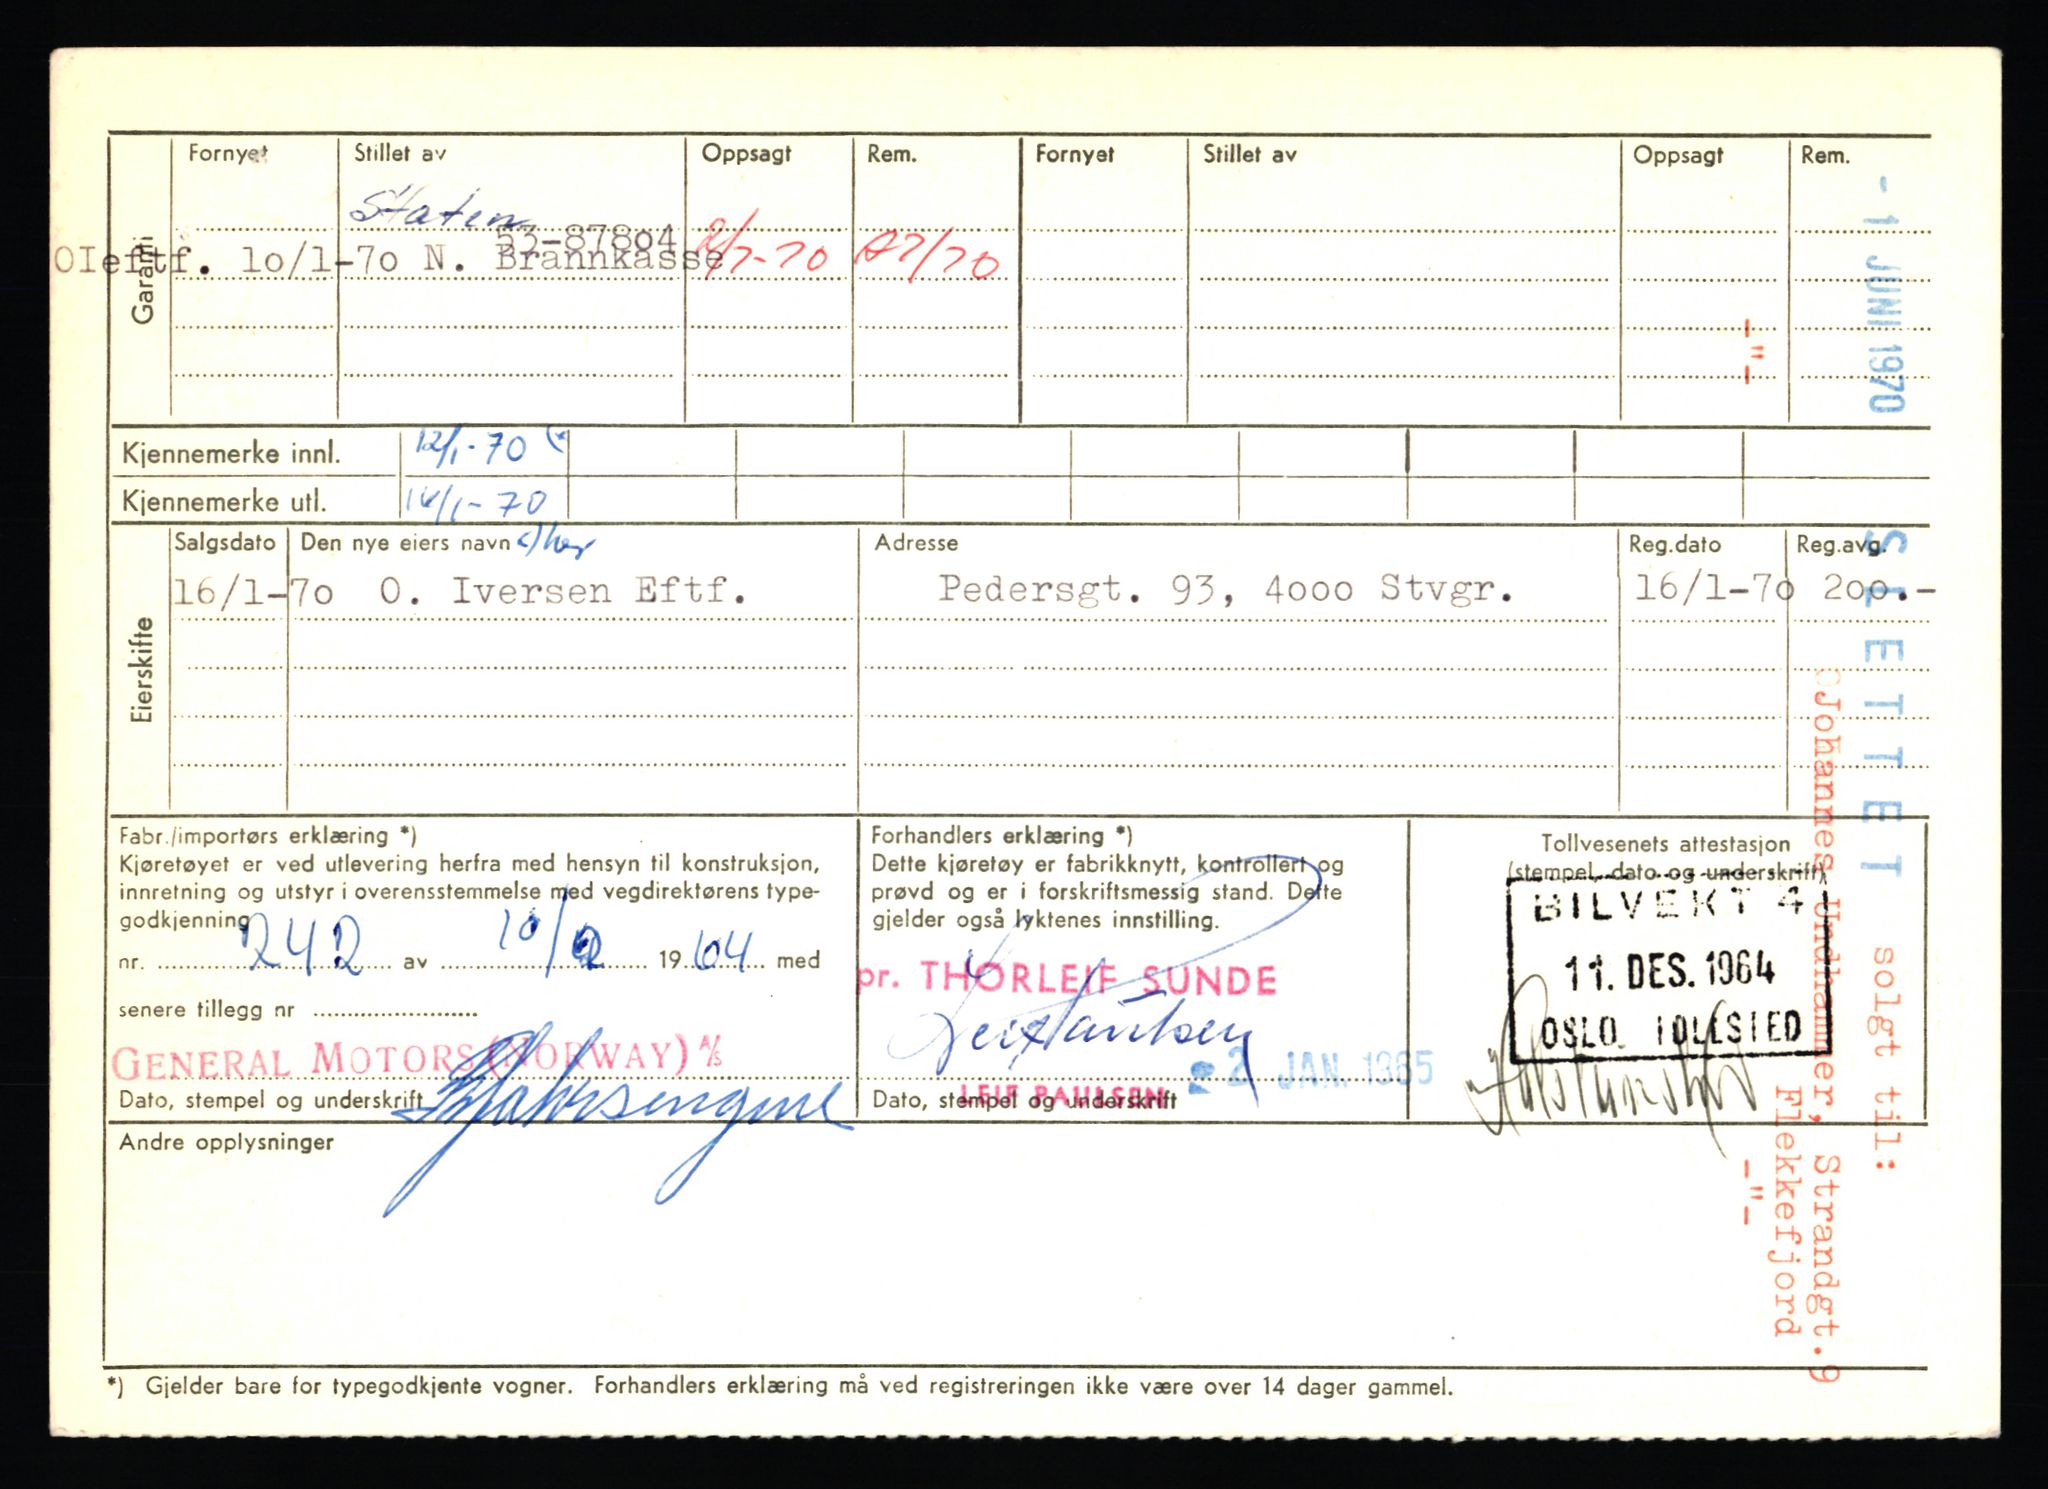 Garanti
Fornyet Stillet av Oppsagt Rem. Fornyet Stillet av Oppsagt Rem.
Staten
53-87804
OIeftf. 10/1-70 N. Brannkasse 2/7-70 A7/70
Kjennemerke innl. 12/1-70
Kjennemerke utl. 14/1-70
Eierskifte
Salgsdato Den nye eiers navn Adresse Reg.dato Reg.avg.
16/1-70 O. Iversen Eftf. Pedersgt. 93, 4000 Stvgr. 16/1-70 200.-
Fabr./importørs erklæring *)
Kjøretøyet er ved utlevering herfra med hensyn til konstruksjon,
innretning og utstyr i overensstemmelse med vegdirektørens type-
godkjenning
nr. 242 av 10/ 1964 med
senere tillegg nr
GENERAL MOTORS (NORWAY) A/S
Dato, stempel og underskrift
Forhandlers erklæring *)
Dette kjøretøy er fabrikknytt, kontrollert og
prøvd og er i forskriftsmessig stand. Dette
gjelder også lyktenes innstilling.
pr. THORLEIF SUNDE
Leif Paulsen
2 JAN. 1965
LEIF PAULSEN
Dato, stempel og underskrift
Tollvesenets attestasjon
(stempel, dato og underskrift)
BILVEKT 4
11. DES. 1964
OSLO TOLLSTED
Andre opplysninger
*) Gjelder bare for typegodkjente vogner. Forhandlers erklæring må ved registreringen ikke være over 14 dager gammel.
- 1 JUNI 1970
SLETTET solgt til:
Johannes Undhammer, Strandgt. 9
Flekkefjord
-"- -"-